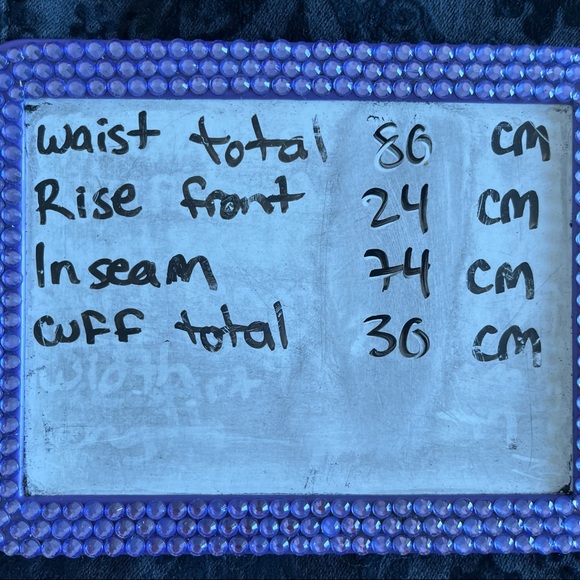 waist total 86 cm
Rise front 24 cm
Inseam 74 cm
cuff total 36 cm